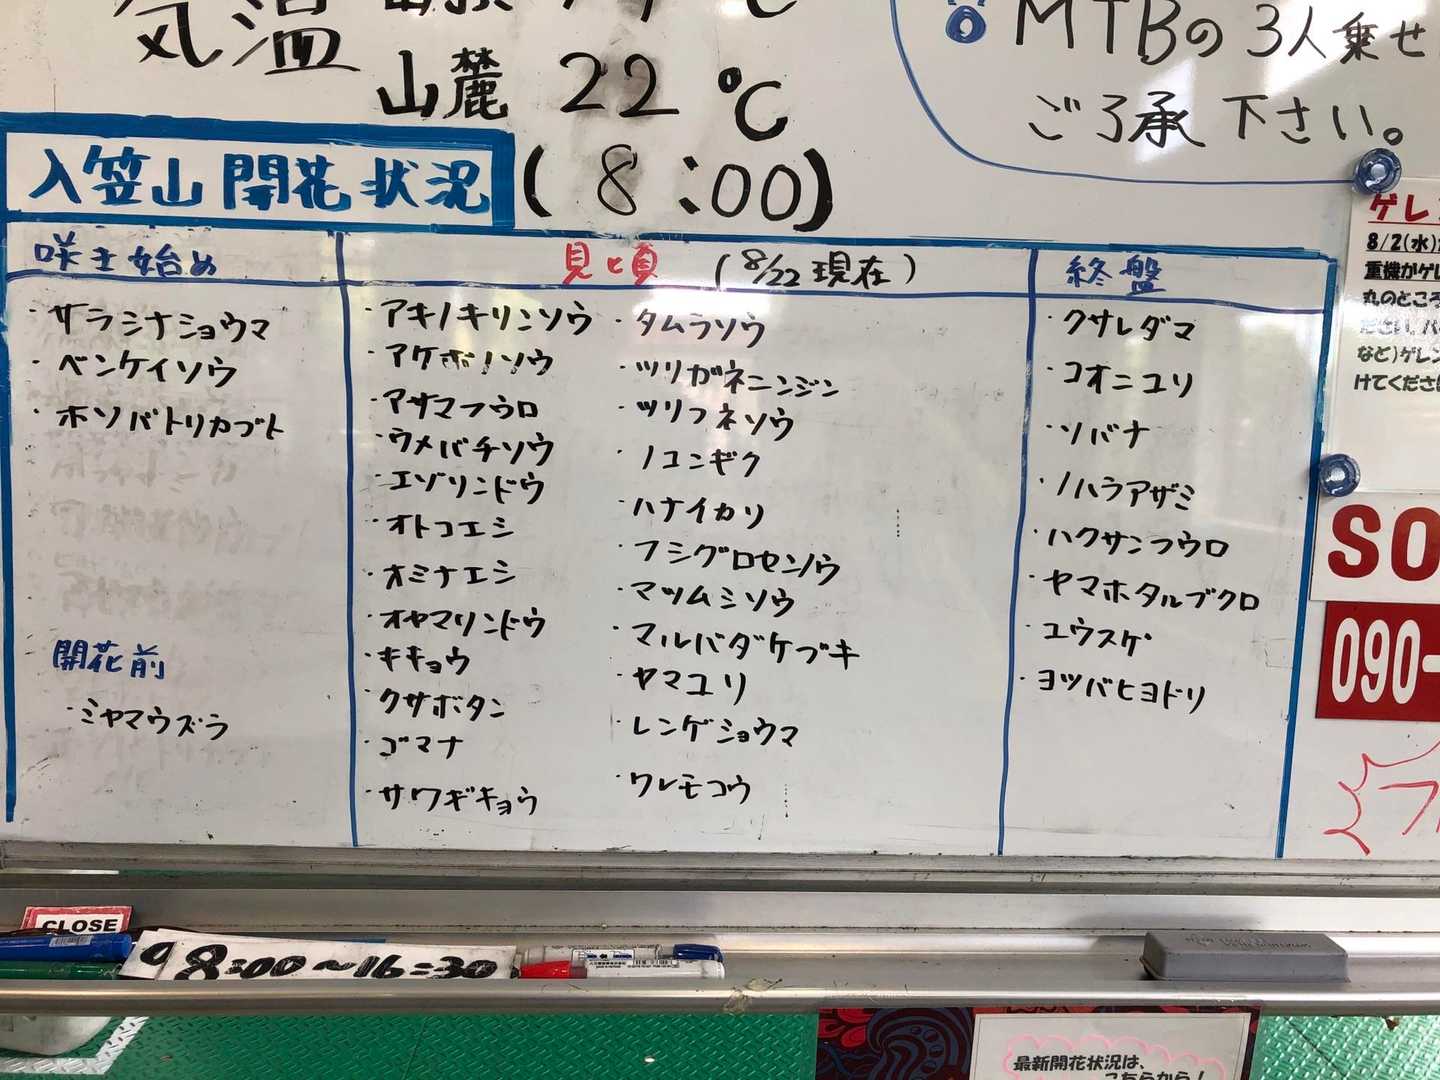 気温
山麓 22℃
MTBの3人乗せ
ご了承下さい。
入笠山 開花状況 (8:00)
咲き始め
・サラシナショウマ
・ベンケイソウ
・ホソバトリカブト
開花前
・ミヤマウズラ
見頃 (8/22現在)
・アキノキリンソウ
・アケボノソウ
・アサマフウロ
・ウメバチソウ
・エゾリンドウ
・オトコエシ
・オミナエシ
・オヤマリンドウ
・キキョウ
・クサボタン
・ゴマナ
・サワギキョウ
・タムラソウ
・ツリガネニンジン
・ツリフネソウ
・ノコンギク
・ハナイカリ
・フシグロセンノウ
・マツムシソウ
・マルバダケブキ
・ヤマユリ
・レンゲショウマ
・ワレモコウ
終盤
・クサレダマ
・コオニユリ
・ソバナ
・ノハラアザミ
・ハクサンフウロ
・ヤマホタルブクロ
・ユウスゲ
・ヨツバヒヨドリ
ゲレ
8/2(水)
重機がゲレ
丸のところ
ださい。バ
など)ゲレン
けてくださ
SO
090-
CLOSE
8:00~16:30
最新開花状況は、
こちらから!